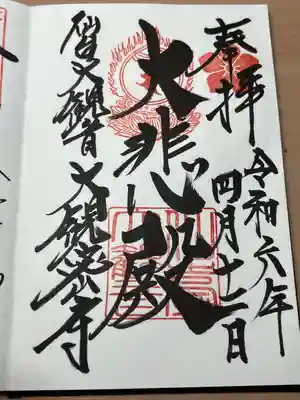 奉拝
令和六年
四月十二日
大悲殿
仙臺大観音
大観密寺